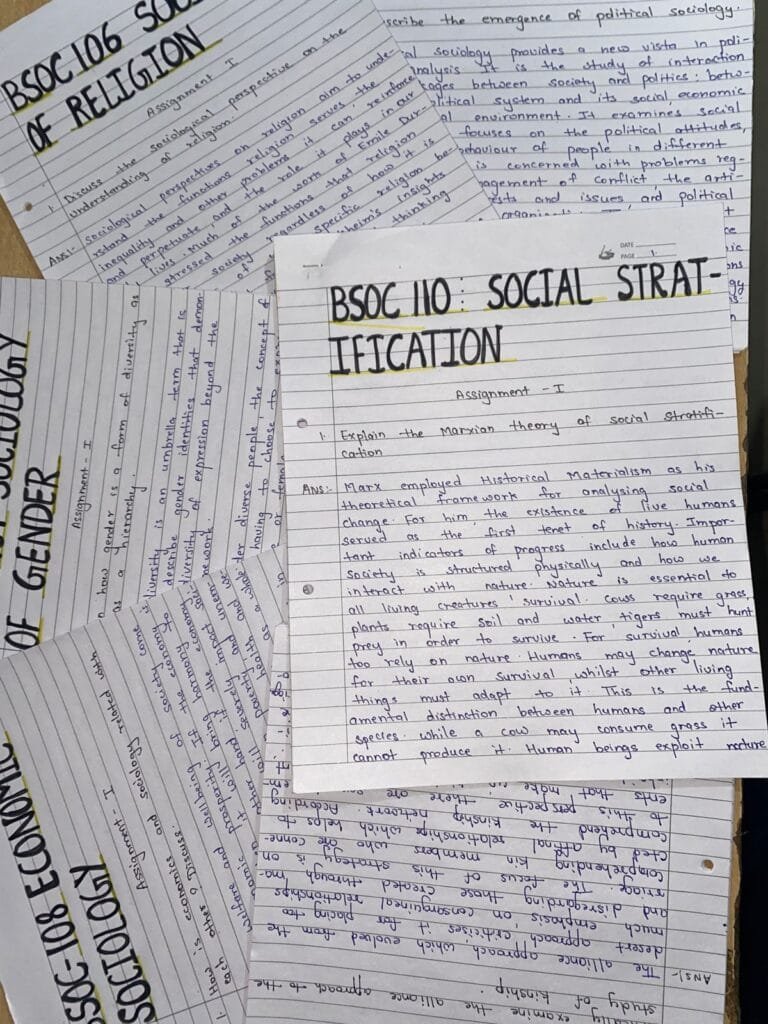 BSOC 106 SOC
OF RELIGION
Assignment I
1. Discuss the sociological perspective on the
understanding of religion.
Ans:- Sociological perspectives on religion aim to unde-
rstand the functions religion serves, the
inequality and other problems it can reinforce
and perpetuate, and the role it plays in our
lives. Much of the work of Emile Dur-
stressed the functions that religion
society regardless of how it is
of specific religion be-
heim's insights
thinking
scribe the emergence of political sociology.
al sociology provides a new vista in poli-
analysis It is the study of interaction
ages between society and politics: betw-
litical system and its social, economic
al environment. It examines social
focuses on the political attitudes,
behaviour of people in different
is concerned with problems reg-
agement of conflict, the arti-
ests and issues, and political
SOCIOLOGY
OF GENDER
Assignment - I
n how gender is a form of diversity as
as a hierarchy.
diversity is an umbrella term that is
describe gender identities that demon-
diversity of expression beyond the
nework.
der diverse people, the concept of
having to choose to
or female
DATE
PAGE 1
BSOC 110: SOCIAL STRAT-
IFICATION
Assignment - I
1. Explain the Marxian theory of social Stratifi-
cation
Ans:- Marx employed Historical Materialism as his
theoretical framework for analysing social
change. For him, the existence of live humans
served as the first tenet of history. Impor-
tant indicators of progress include how human
society is structured physically and how we
interact with nature. Nature is essential to
all living creatures' survival. Cows require grass,
plants require soil and water, tigers must hunt
prey in order to survive. For survival humans
too rely on nature. Humans may change nature
for their own survival, whilst other living
things must adapt to it. This is the fund-
amental distinction between humans and other
species. while a cow may consume grass it
cannot produce it. Human beings exploit nature
BSOC-108 ECONOMIC
SOCIOLOGY
Assignment - I
1. How is economics and sociology related with
each others? Discuss.
welfare and wellbeing of society come
prosperity. If the economy
it will bring harmony
other hand, if the economy
will severely impact
poverty, and
health as a whole
ically examine the alliance approach to the
study of kinship.
Ans:- The alliance approach, which evolved from the
desert approach, criticises it for placing too
much emphasis on consanguineal relationships
and disregarding those created through ma-
rriage. The focus of this strategy is on
comprehending kin members who are conne-
cted by affinal relationships which helps to
comprehend the kinship network. According
to this perspective there are
ents that make